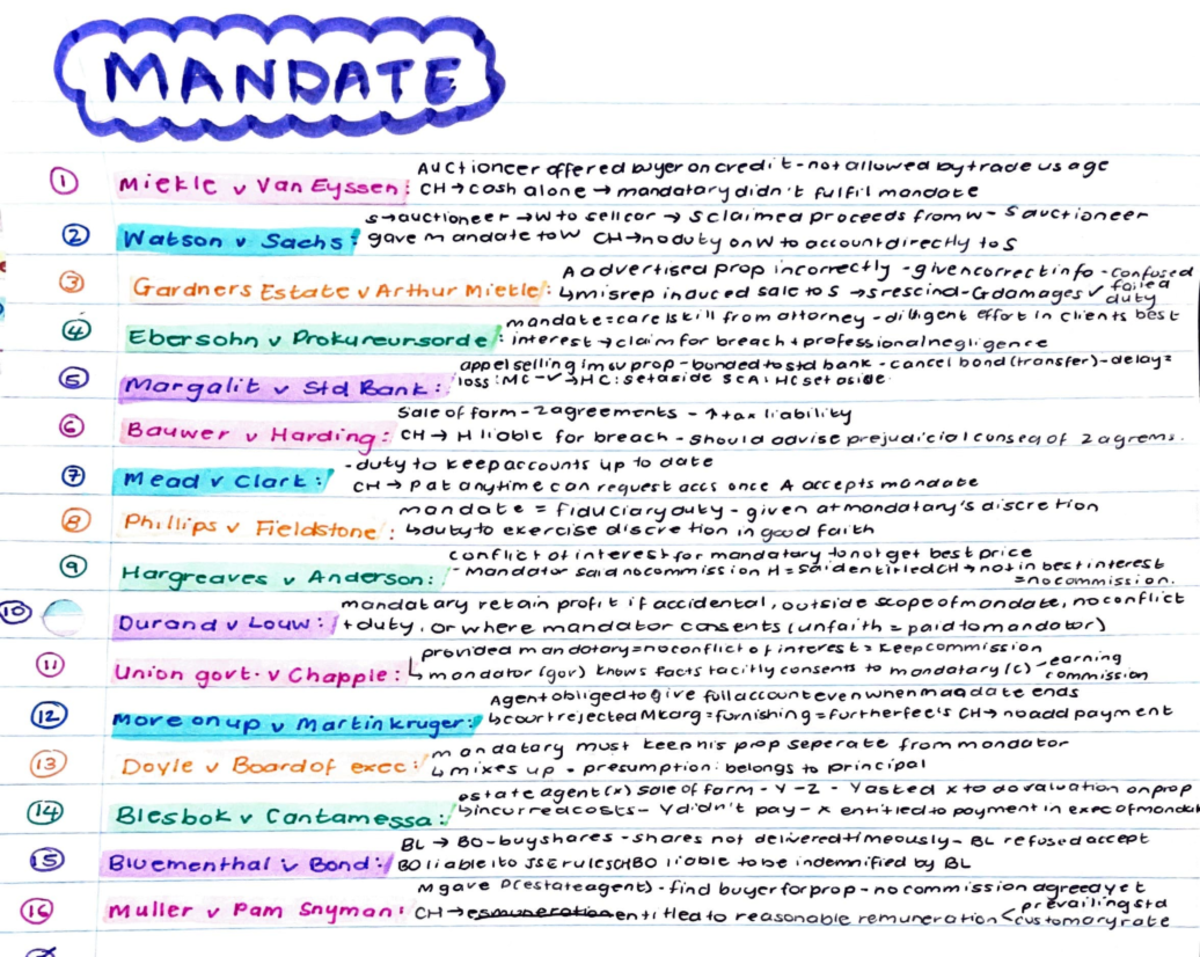 MANDATE
① Miekle v Van Eyssen: Auctioneer offered buyer on credit - not allowed by trade usage
CH → cash alone → mandatary didn't fulfil mandate
② Watson v Sachs: S → auctioneer → W to sell car → S claimed proceeds from W - S auctioneer
gave mandate to W CH → no duty on W to account directly to S
③ Gardners Estate v Arthur Miekle: A advertised prop incorrectly - given correct info - confused
↳ misrep induced sale to S → S rescind - G damages ✓ failed duty
④ Ebersohn v Prokureursorde: mandate = care/skill from attorney - diligent effort in clients best
interest → claim for breach + professional negligence
⑤ Margalit v Std Bank: appel selling imov prop - bonded to std bank - cancel bond (transfer) - delay =
loss : MC - ✓ → HC : set aside SCA : HC set aside.
⑥ Bauwer v Harding: Sale of farm - 2 agreements - ↑ tax liability
CH → H liable for breach - should advise prejudicial conseq of 2 agrems.
⑦ Mead v Clark: - duty to keep accounts up to date
CH → P at anytime can request accs once A accepts mandate
⑧ Phillips v Fieldstone: mandate = fiduciary duty - given at mandatary's discretion
↳ duty to exercise discretion in good faith
⑨ Hargreaves v Anderson: conflict of interest for mandatary to not get best price
- Mandator said no commission H = said entitled CH → not in best interest
= no commission.
⑩ Durand v Louw: mandatary retain profit if accidental, outside scope of mandate, no conflict
+ duty, or where mandator consents (unfaith = paid to mandator)
⑪ Union govt. v Chapple: provided mandatary = no conflict of interest = keep commission
↳ mandator (gov) knows facts tacitly consents to mandatary (C) - earning commission
⑫ More on up v Martin kruger: Agent obliged to give full account even when mandate ends
↳ court rejected MK arg = furnishing = further fee's CH → no add payment
⑬ Doyle v Board of exec: mandatary must keep his prop seperate from mandator
↳ mixes up - presumption: belongs to principal
⑭ Blesbok v Cantamessa: estate agent (x) sale of farm - Y - Z - Y asked x to do valuation on prop
↳ incurred costs - Y didn't pay - x entitled to payment in exec of manda
⑮ Bluementhal v Bond: BL → BO - buy shares - shares not delivered timeously - BL refused accept
BO liable ito JSE rules CH BO liable to be indemnified by BL
⑯ Muller v Pam Snyman: M gave P (estate agent) - find buyer for prop - no commission agreed yet
CH → entitled to reasonable remuneration < prevailing std
customary rate